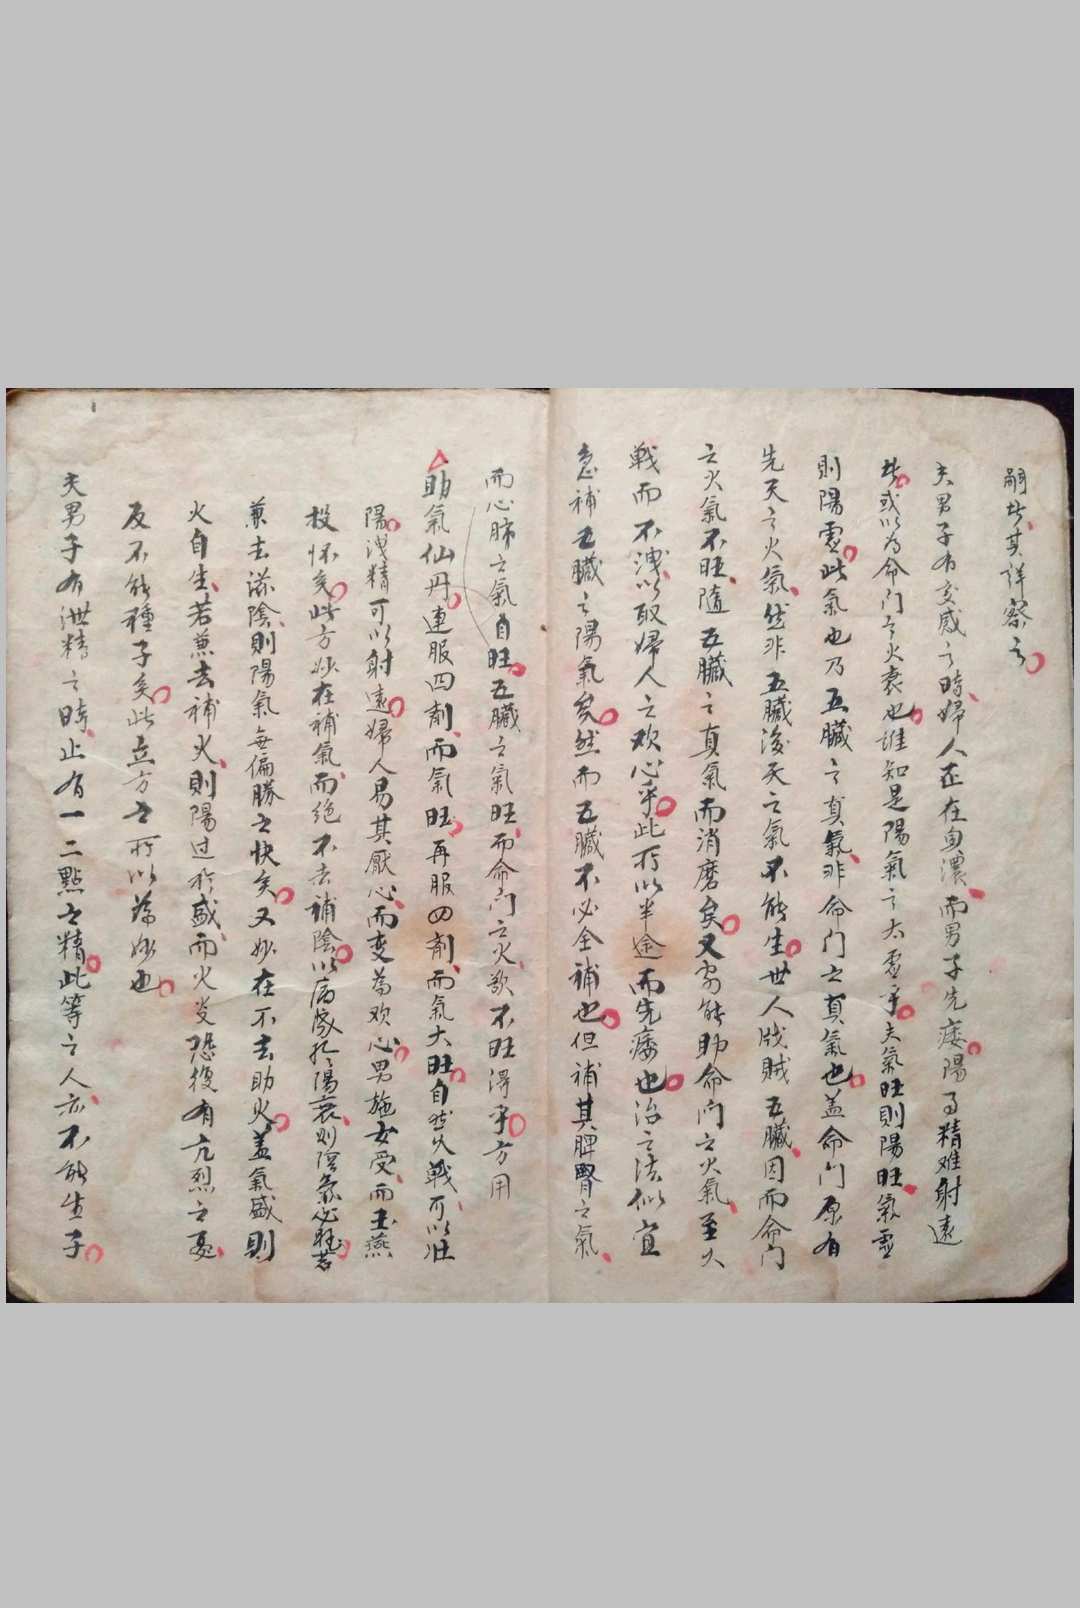 嗣者其詳察之
夫男子有交感之時婦人正在興濃而男子先痿陽事精难射遠
者或以為命门之火衰也誰知是陽氣之太虛乎夫氣旺則陽旺氣虛
則陽虛此氣也乃五臟之真氣非命门之真氣也盖命门原有
先天之火氣然非五臟後天之氣不能生世人戕賊五臟因而命门
之火氣不旺隨五臟之真氣而消磨矣又安能助命门之火氣至久
戰而不洩以取婦人之欢心乎此所以半途而先痿也治之法似宜
急補五臟之陽氣矣然而五臟不必全補也但補其脾腎之氣
而心肺之氣自旺五臟之氣旺而命门之火欲不旺得乎方用
助氣仙丹連服四劑而氣旺再服四劑而氣大旺自然久戰可以壯
陽洩精可以射遠婦人易其厭心而变為欢心男施女受而玉燕
投怀矣此方妙在補氣而絶不去補陰以病成於陽衰则陰氣必旺若
兼去滋陰則陽氣無偏勝之快矣又妙在不去助火盖氣盛則
火自生若兼去補火則陽过於盛而火炎恐復有亢烈之憂
反不能種子矣此立方之所以為妙也
夫男子有泄精之時止有一二點之精此等之人亦不能生子